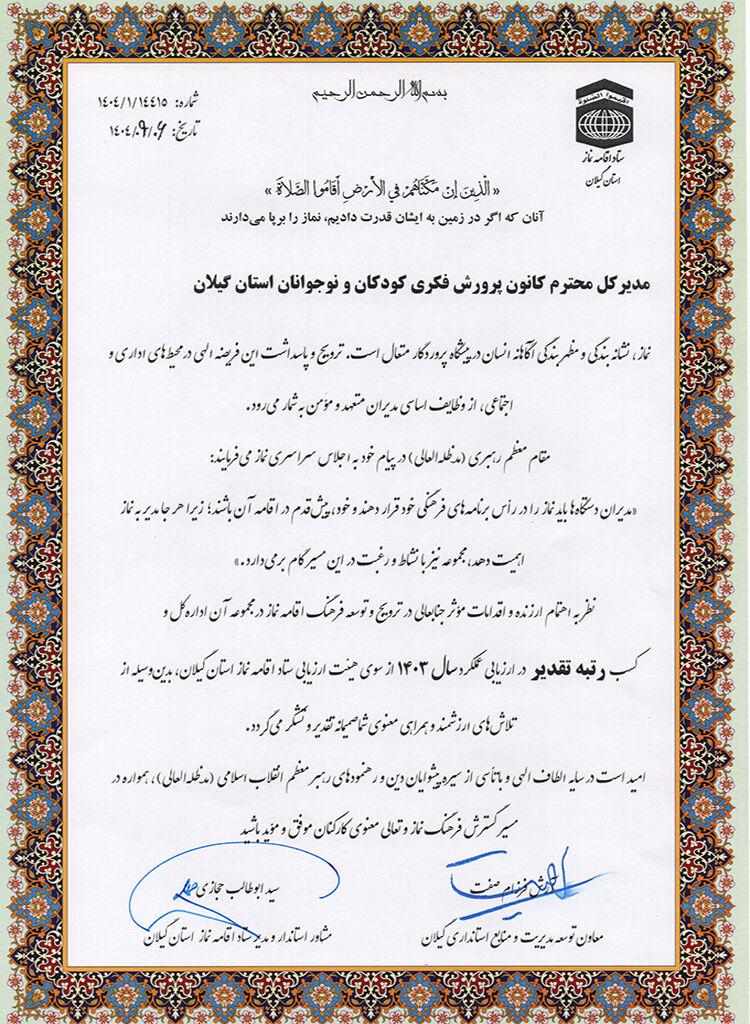 بسم الله الرحمن الرحیم
اقیموا الصلوة
ستاد اقامه نماز
استان گیلان
شماره: ۱۴۰۴/۱/۱۴۴۱۵
تاریخ: ۱۴۰۴/۰۹/۰۶
« الَّذِينَ إِنْ مَكَّنَّاهُمْ فِي الْأَرْضِ أَقَامُوا الصَّلَاةَ »
آنان که اگر در زمین به ایشان قدرت دادیم، نماز را برپا می‌دارند
مدیرکل محترم کانون پرورش فکری کودکان و نوجوانان استان گیلان
نماز، نشانه بندگی و مظهر بندگی آگاهانه انسان در پیشگاه پروردگار متعال است. ترویج و پاسداشت این فریضه الهی در محیط‌های اداری و
اجتماعی، از وظایف اساسی مدیران متعهد و مؤمن به شمار می‌رود.
مقام معظم رهبری (مدظله‌العالی) در پیام خود به اجلاس سراسری نماز می‌فرمایند:
«مدیران دستگاه‌ها باید نماز را در رأس برنامه‌های فرهنگی خود قرار دهند و خود، پیش‌قدم در اقامه آن باشند؛ زیرا هر جا مدیر به نماز
اهمیت دهد، مجموعه نیز با نشاط و رغبت در این مسیر گام برمی‌دارد.»
نظر به اهتمام ارزنده و اقدامات مؤثر جنابعالی در ترویج و توسعه فرهنگ اقامه نماز در مجموعه آن اداره‌کل و
کسب رتبه تقدیر در ارزیابی عملکرد سال ۱۴۰۳ از سوی هیئت ارزیابی ستاد اقامه نماز استان گیلان، بدین‌وسیله از
تلاش‌های ارزشمند و همراهی معنوی شما صمیمانه تقدیر و تشکر می‌گردد.
امید است در سایه الطاف الهی و با تأسی از سیره پیشوایان دین و رهنمودهای رهبر معظم انقلاب اسلامی (مدظله‌العالی)، همواره در
مسیر گسترش فرهنگ نماز و تعالی معنوی کارکنان موفق و مؤید باشید
فرزام صفت
معاون توسعه مدیریت و منابع استانداری گیلان
سید ابوطالب حجازی
مشاور استاندار و مدیر ستاد اقامه نماز استان گیلان